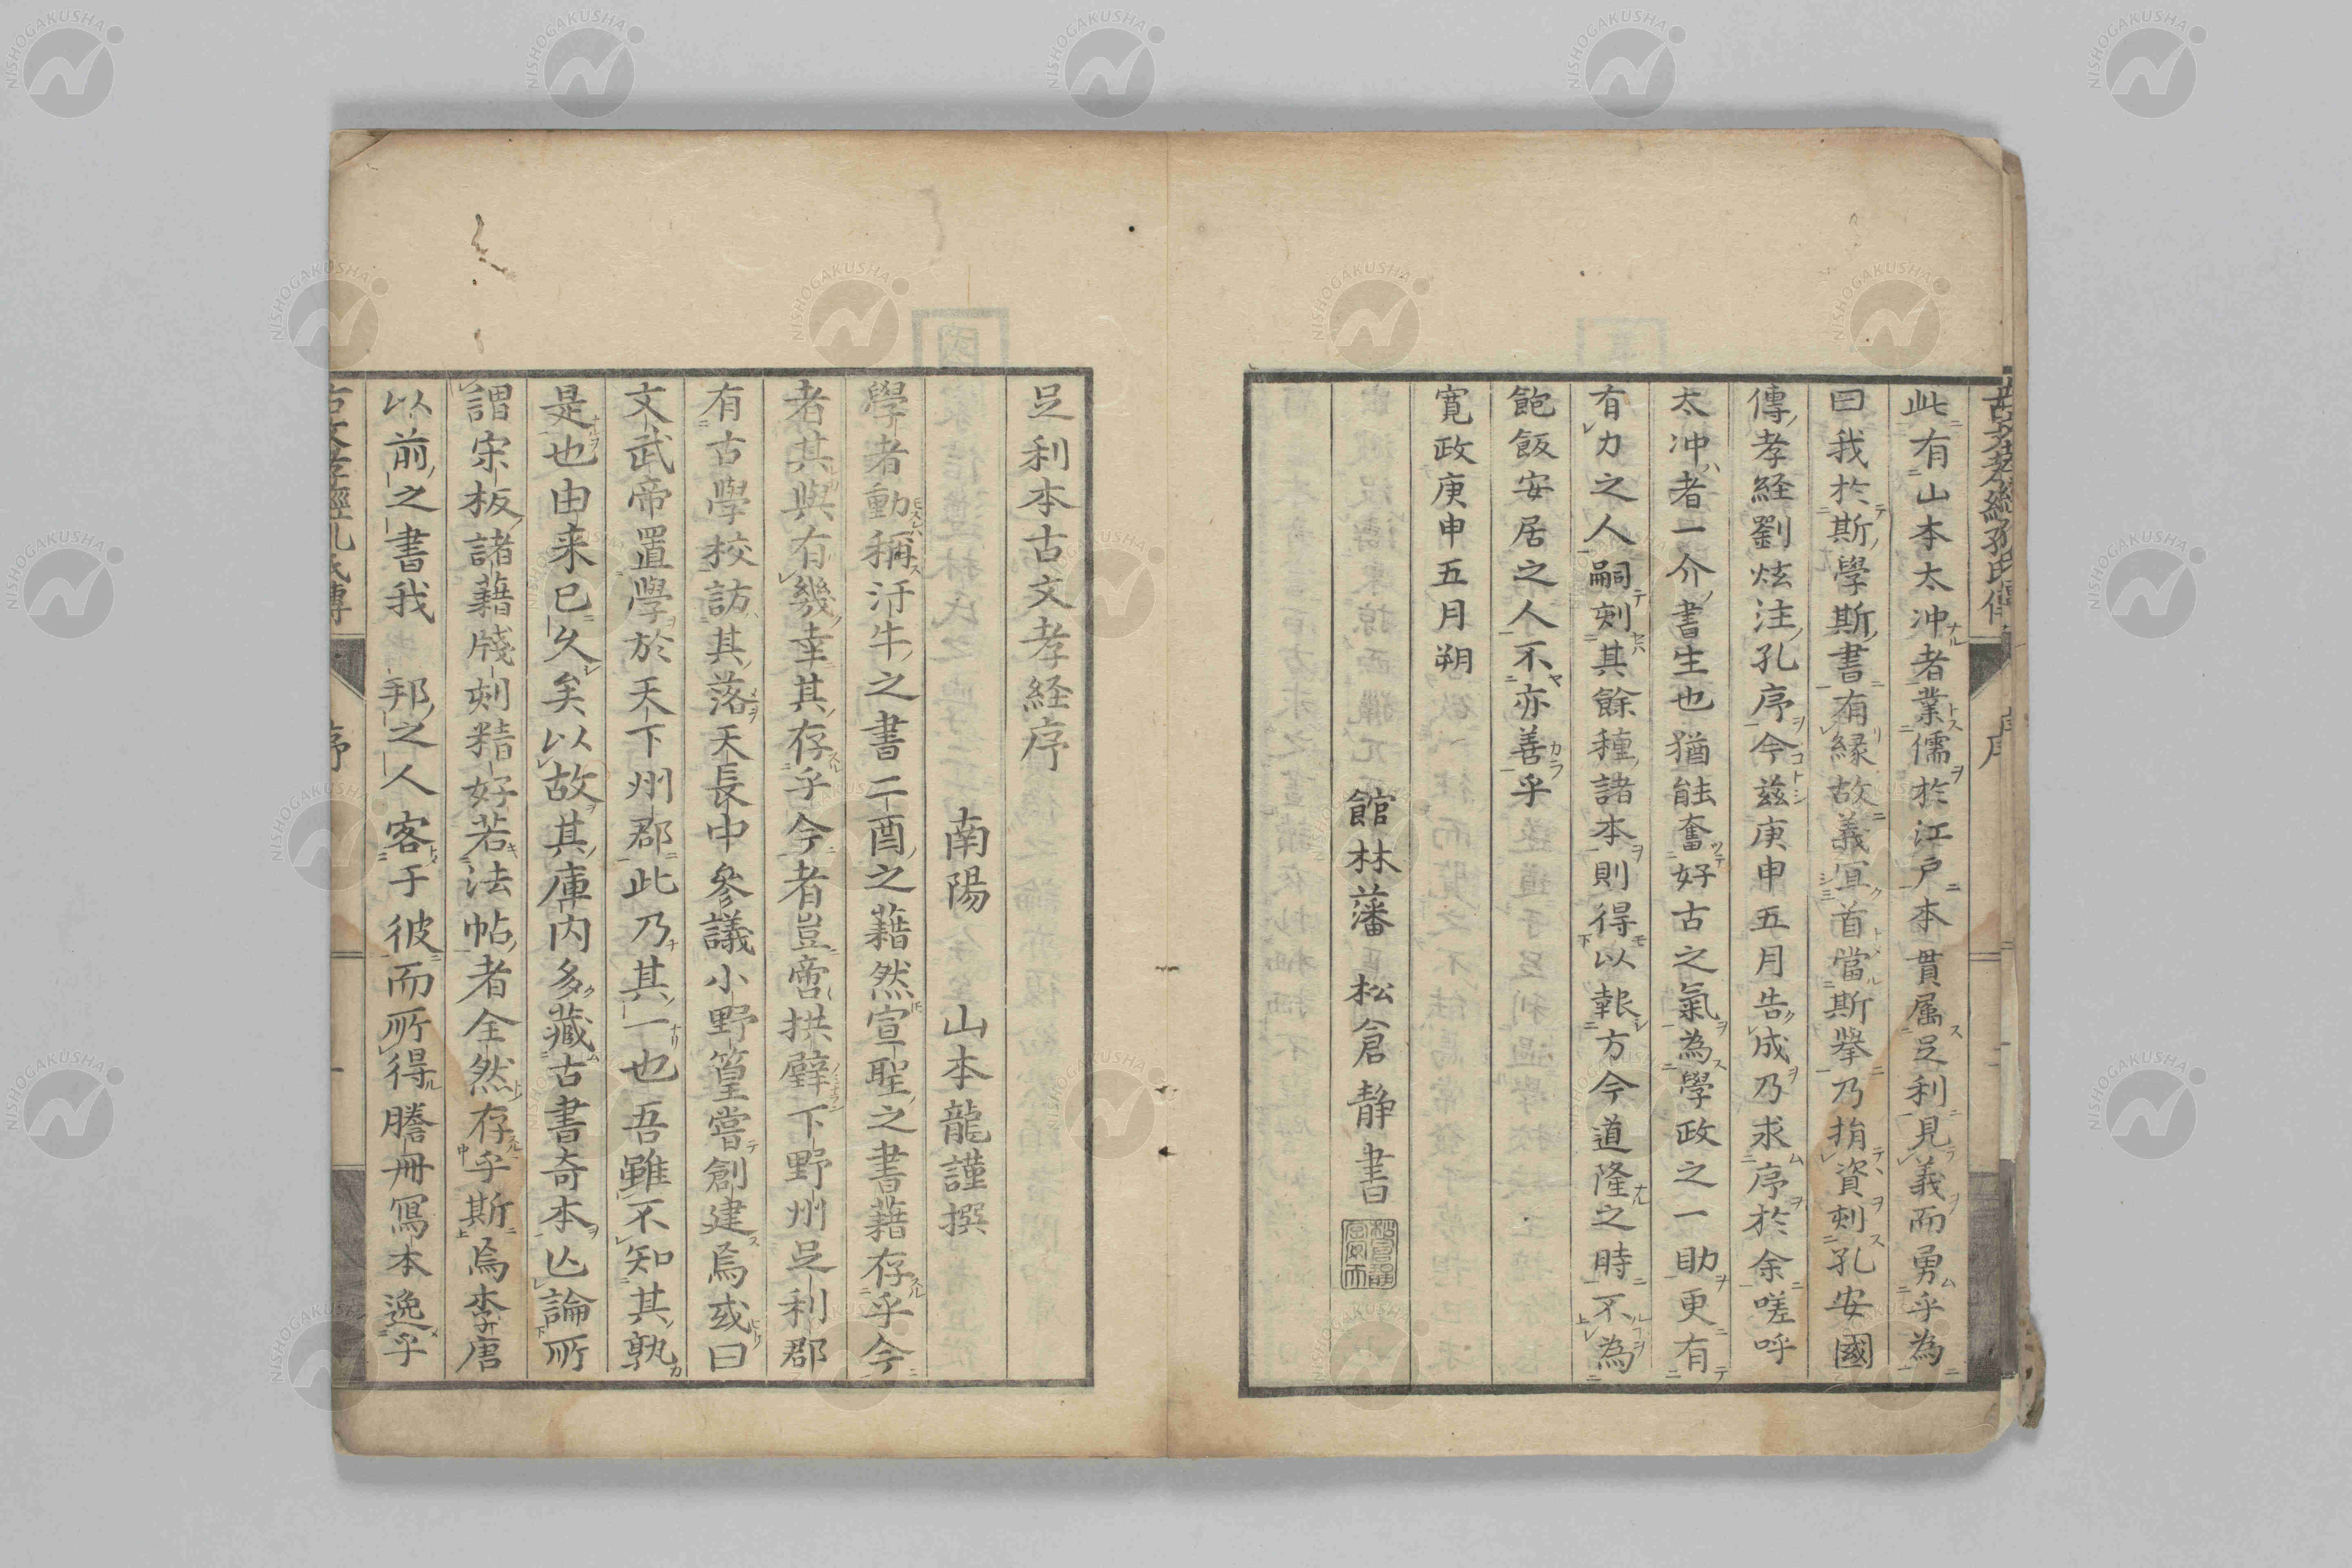 古文孝經孔氏傳 序
此有山本太冲者業儒於江戸本貫属足利見義而勇乎為
曰我於斯學斯書有縁故義冝首當斯擧乃捐資刻孔安國
傳孝経劉炫注孔序今兹庚申五月告成乃求序於余嗟呼
太冲者一介書生也猶能奮好古之氣為學政之一助更有
有力之人嗣刻其餘種諸本則得以報方今道隆之時不為
飽飯安居之人不亦善乎
寛政庚申五月朔
館林藩 松倉静書
足利本古文孝経序
南陽 山本龍謹撰
學者動稱汗牛之書二酉之藉然宣聖之書藉存乎今
者其與有幾幸其存乎今者豈啻拱璧下野州足利郡
有古學校訪其落天長中參議小野篁嘗創建焉或曰
文武帝置學於天下州郡此乃其一也吾雖不知其孰
是也由来已久矣以故其庫内多藏古書奇本亾論所
謂宋板諸藉牋刻精好若法帖者全然存乎斯焉李唐
以前之書我 邦之人客于彼而所得謄冊寫本逸乎
古文孝經孔氏傳 序 一
NISHOGAKUSHA